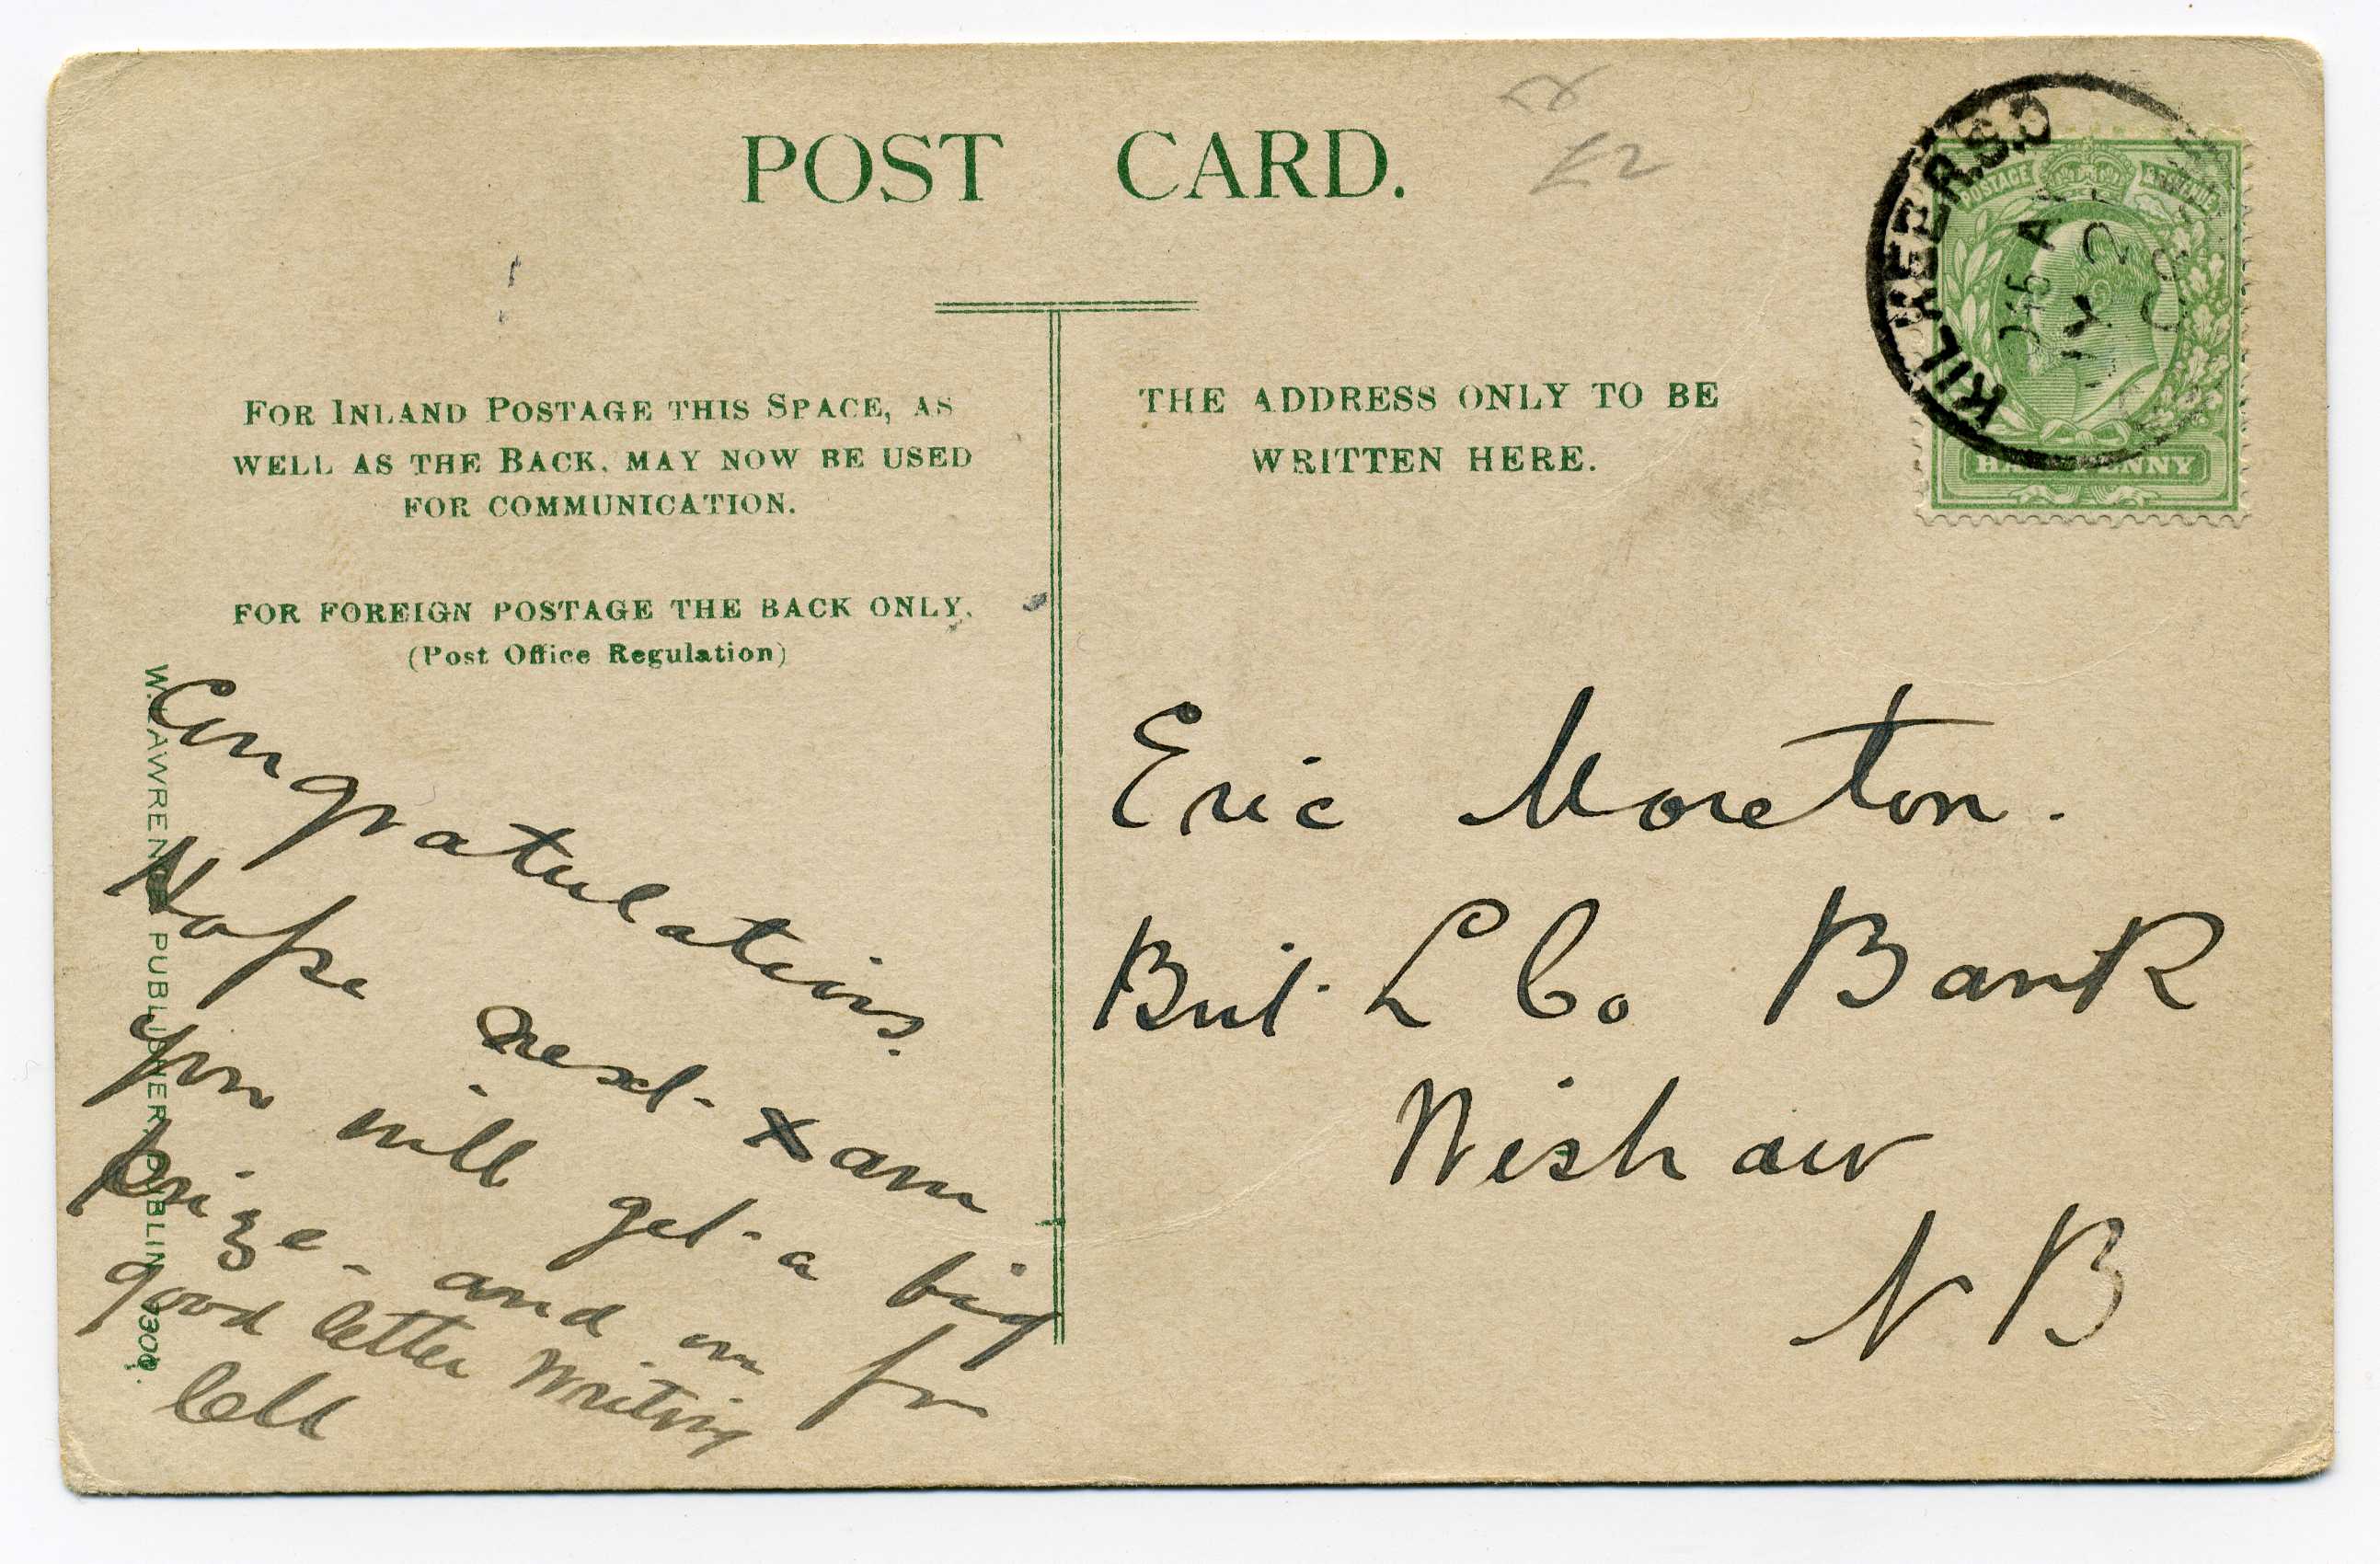 POST CARD.
£2
FOR INLAND POSTAGE THIS SPACE, AS
WELL AS THE BACK, MAY NOW BE USED
FOR COMMUNICATION.
FOR FOREIGN POSTAGE THE BACK ONLY.
(Post Office Regulation)
THE ADDRESS ONLY TO BE
WRITTEN HERE.
POSTAGE & REVENUE
HALFPENNY
KILKEE R.S.O
W. LAWRENCE, PUBLISHER, DUBLIN
Congratulations.
Hope next xam
you will get a big
prize - and one for
good letter writing
Eric Moreton.
Brit. L Co Bank
Wishaw
N B